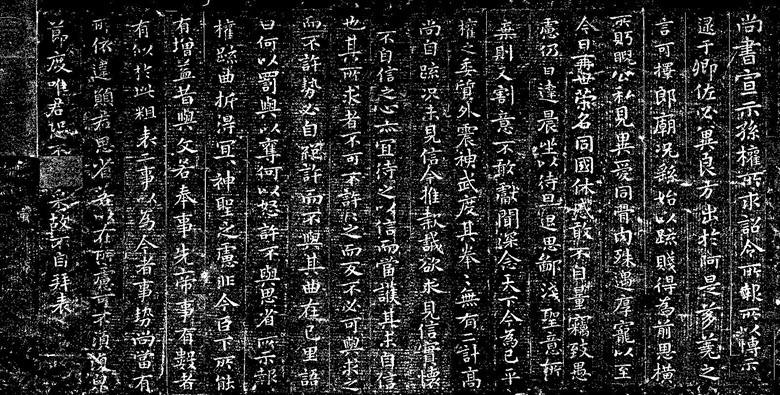 尚書宣示孫權所求詔令所報所以博示
逮于卿佐必冀良方出於阿是芻蕘之
言可擇郎廟況繇始以疏賤得為前恩橫
所眂公私見異愛同骨肉殊遇厚寵以至
今日再世榮名同國休慼敢不自量竊致愚
慮仍日達晨坐以待旦退思鄙淺聖意所
棄則又割意不敢獻聞深念天下今為已平
權之委質外震神武度其拳拳無有二計高
尚自疏況未見信今推款誠欲求見信實懷
不自信之心亦宜待之以信而當護其未自信
也其所求者不可不許許之而反不必可與求之
而不許勢必自絕許而不與其曲在己里語
曰何以罰與以奪何以怒許不與思省所示報
權疏曲折得宜宜神聖之慮非今臣下所能
有增益昔與文若奉事先帝事有數者
有似於此粗表二事以為今者事勢尚當有
所依違願君思省若以在所慮可不須復貌
節度唯君恐不可采故不自拜表